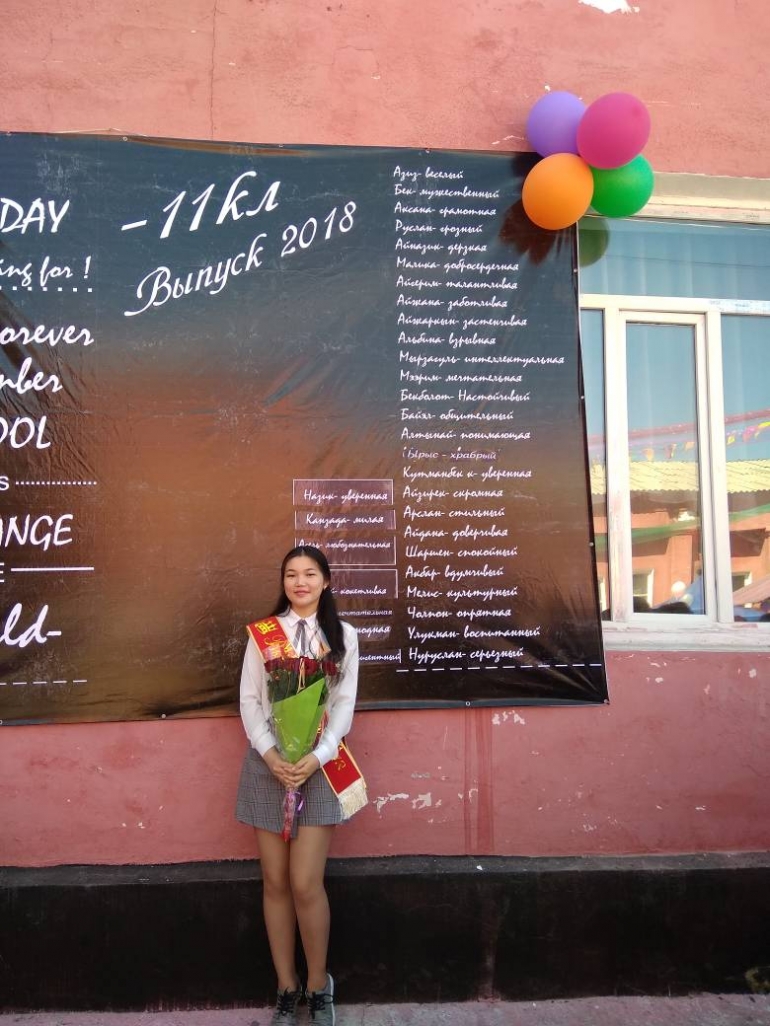 DAY
ing for !
orever
mber
OOL
s
ANGE
E
ld-
-11кл
Выпуск 2018
Азиз- веселый
Бек- мужественный
Аксана- грамотная
Руслан- грозный
Айназик- дерзная
Малика- добросердечная
Айгерим- талантливая
Айжана- заботливая
Айжаркын- застенчивая
Альбина- взрывная
Мырзагуль- интеллектуальная
Мээрим- мечтательная
Бекболот- Настойчивый
Байэл- общительный
Алтынай- понимающая
Ырыс - храбрый
Кутманбек к- уверенная
Айзирек- скромная
Арслан- стильный
Айдана- доверчивая
Шаршен- спокойный
Акбар- вдумчивый
Мелис- культурный
Чолпон- опрятная
Улукман- воспитанный
Нуруслан- серьезный
Назик- уверенная
Канзада- милая
любознательная
- кокетливая